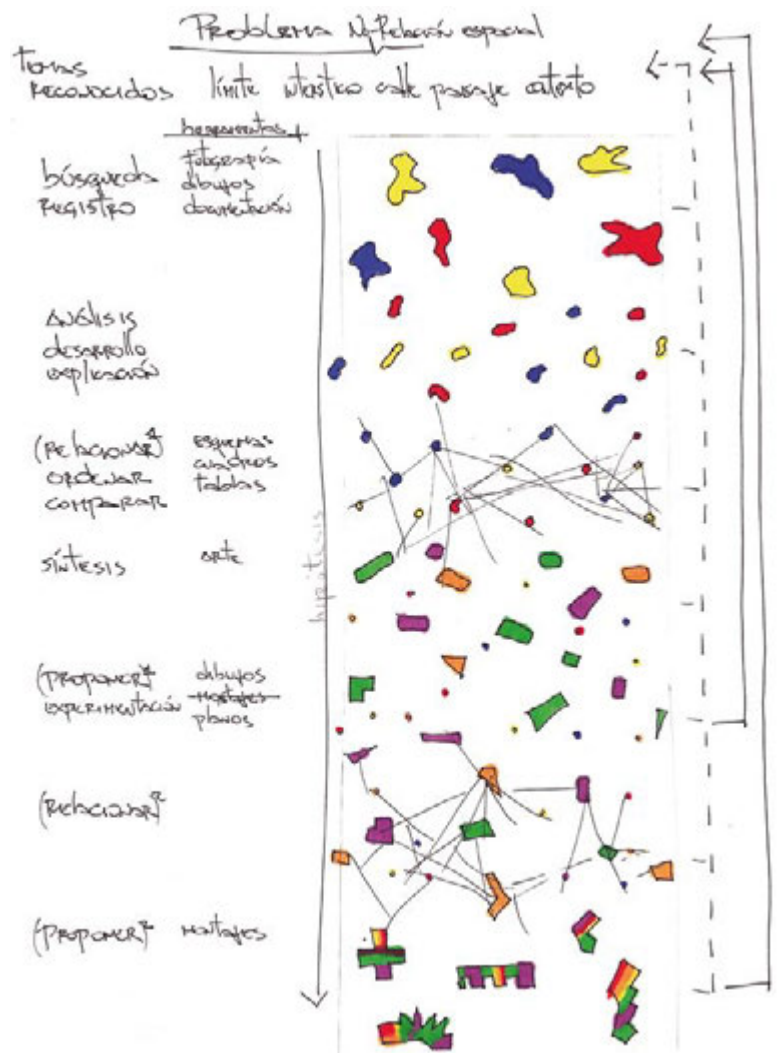 Problema No-Relación espacial
temas
reconocidos límite intersticio calle pasaje contexto
herramientas
búsqueda
registro
fotografía
dibujos
documentación
análisis
desarrollo
explicación
(relacionar)
ordenar
comparar
esquemas
cuadros
tablas
síntesis arte
hipótesis
(proponer)
experimentación
dibujos
montajes
planos
(relacionar)²
(proponer)² montajes